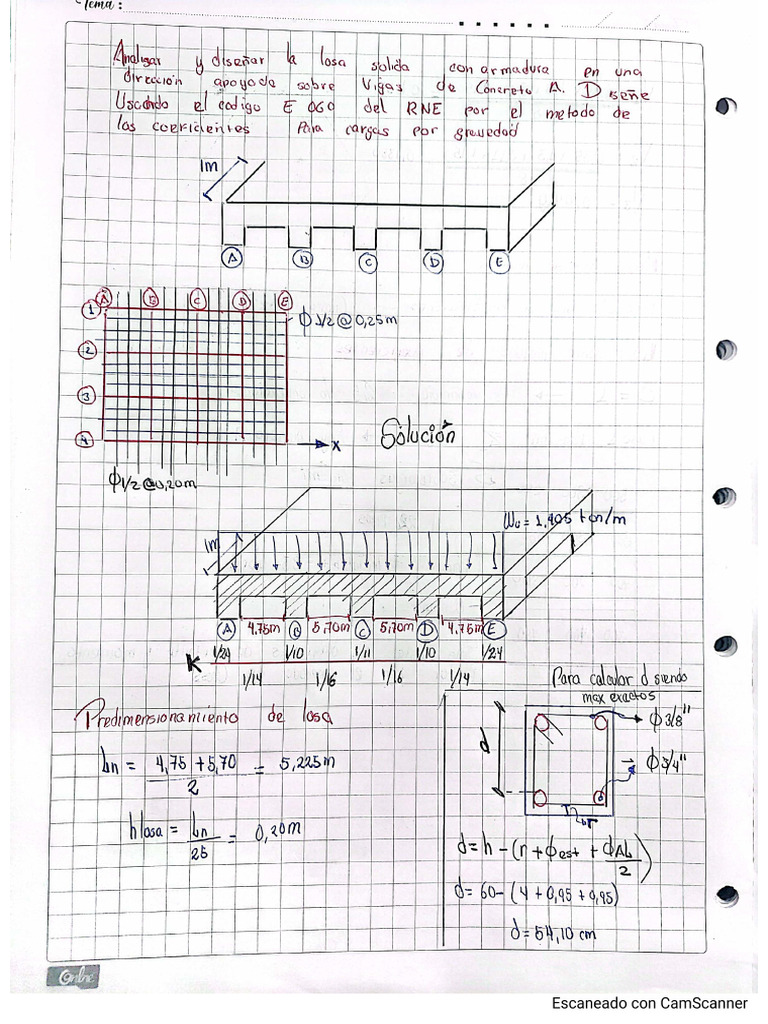 Tema:
Analizar y diseñar la losa solida con armadura en una
dirección apoyada sobre Vigas de Concreto A. Diseñe
Usando el codigo E 060 del RNE por el metodo de
los coeficientes Para cargas por gravedad
1m
A B C D E
A B C D E
1
ϕ 1/2 @ 0,25m
2
3
4
X
Solución
ϕ 1/2 @ 0,20m
Wu = 1,405 ton/m
1m
A 4.75m B 5,70m C 5,70m D 4.75m E
K 1/24 1/10 1/11 1/10 1/24
1/14 1/16 1/16 1/14
Para calcular d siendo
max exactos
Predimensionamiento de losa
Ln = (4,75 + 5,70)/2 = 5,225m
h losa = Ln/25 = 0,20m
d
ϕ 3/8"
ϕ 3/4"
r
d = h - (r + ϕest + ϕAL/2)
d = 60 - (4 + 0,95 + 0,95)
d = 54,10 cm
Escaneado con CamScanner